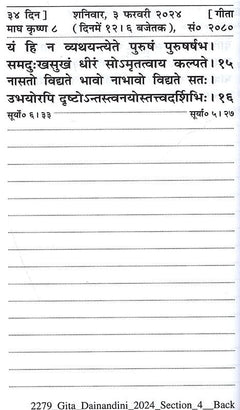 ३४ दिन ] शनिवार, ३ फरवरी २०२४ [ गीता
माघ कृष्ण ८ ( दिनमें १२।६ बजेतक ), सं० २०८०
यं हि न व्यथयन्त्येते पुरुषं पुरुषर्षभ।
समदुःखसुखं धीरं सोऽमृतत्वाय कल्पते। १५
नासतो विद्यते भावो नाभावो विद्यते सतः।
उभयोरपि दृष्टोऽन्तस्त्वनयोस्तत्त्वदर्शिभिः। १६
सूर्यो० ६।३३ सूर्या० ५।२७
2279_Gita_Dainandini_2024_Section_4__Back